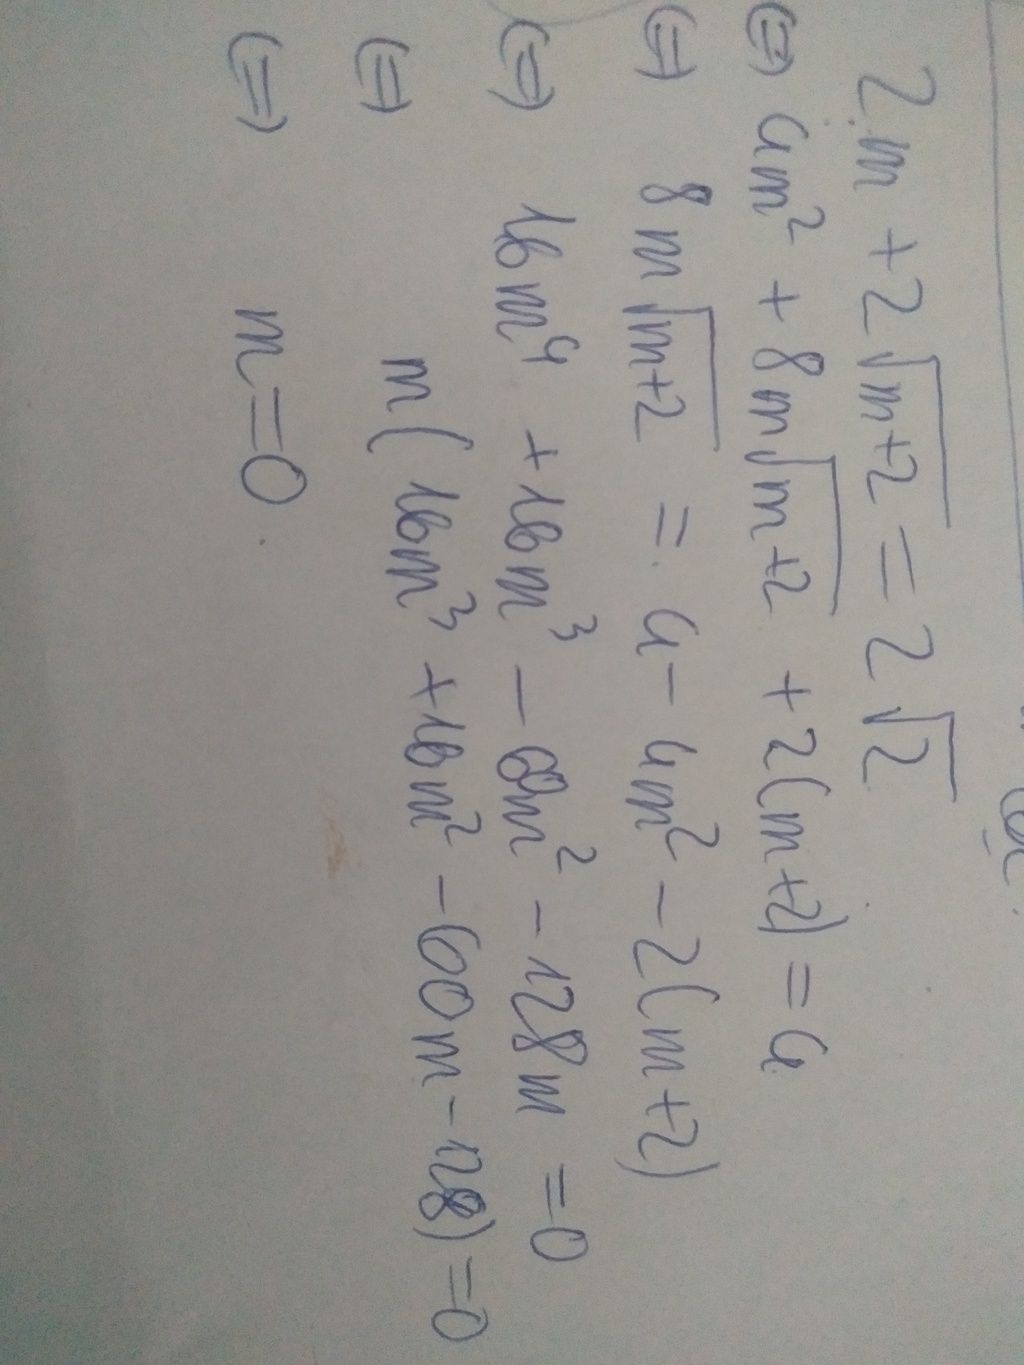 2m + 2√(m+2) = 2√2
(=) 4m² + 8m√(m+2) + 2(m+2) = 4
(=) 8m√(m+2) = 4 - 4m² - 2(m+2)
(=) 16m⁴ + 16m³ - 60m² - 128m = 0
(=) m(16m³ + 16m² - 60m - 128) = 0
(=) m = 0